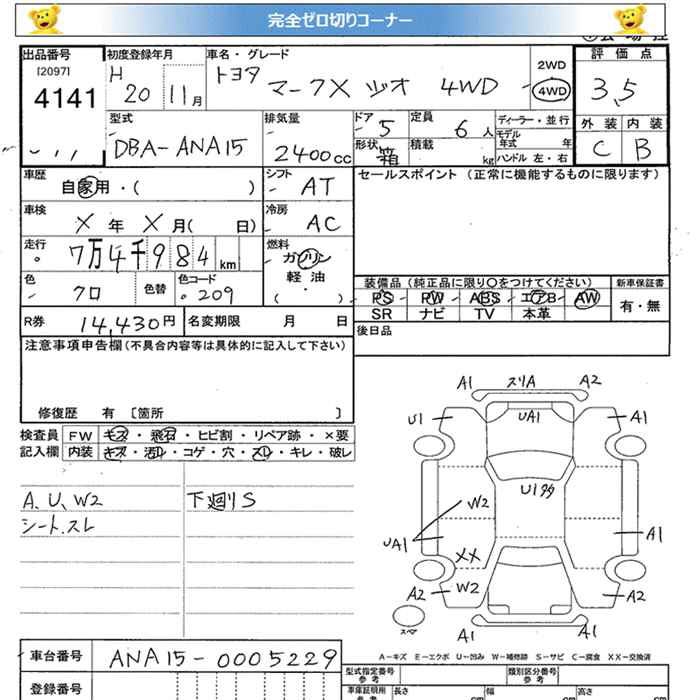 完全ゼロ切りコーナー
出品番号 初度登録年月 車名・グレード 評価点
[2097] H トヨタ 2WD
4141 20 11月 マークX ジオ 4WD 4WD 3.5
型式 排気量 ドア 定員 ディーラー・並行 外装 内装
DBA-ANA15 2400cc 5 6人 モデル年式 年 C B
形状 箱 積載 kg ハンドル 左・右
車歴 自家用・( ) シフト AT セールスポイント (正常に機能するものに限ります)
車検 X年 X月( 日) 冷房 AC
走行 7万4千984km 燃料 ガソリン
軽油
( ・ )
色 クロ 色替 色コード 209
装備品 (純正品に限り○をつけてください) 新車保証書
PS PW ABS エアB AW 有・無
SR ナビ TV 本革
R券 14,430円 名変期限 月 日 後日品
注意事項申告欄(不具合内容等は具体的に記入して下さい)
修復歴 有 [箇所 ]
検査員 FW キズ・飛石・ヒビ割・リペア跡・×要
記入欄 内装 キズ・汚れ・コゲ・穴・スレ・キレ・破レ
A、U、W2 下廻りS
シート、スレ
A1 スリA A2
U1 UA1 A1
U1多
W2
UA1 A1
XX
A2 W2 A2
スペア A1 A1
A-キズ E-エクボ U-凹み W-補修跡 S-サビ C-腐食 XX-交換済
車台番号 ANA15-0005229
登録番号
型式指定番号 参考 類別区分番号 参考
車庫証明用 参考 長さ cm 幅 cm 高さ cm